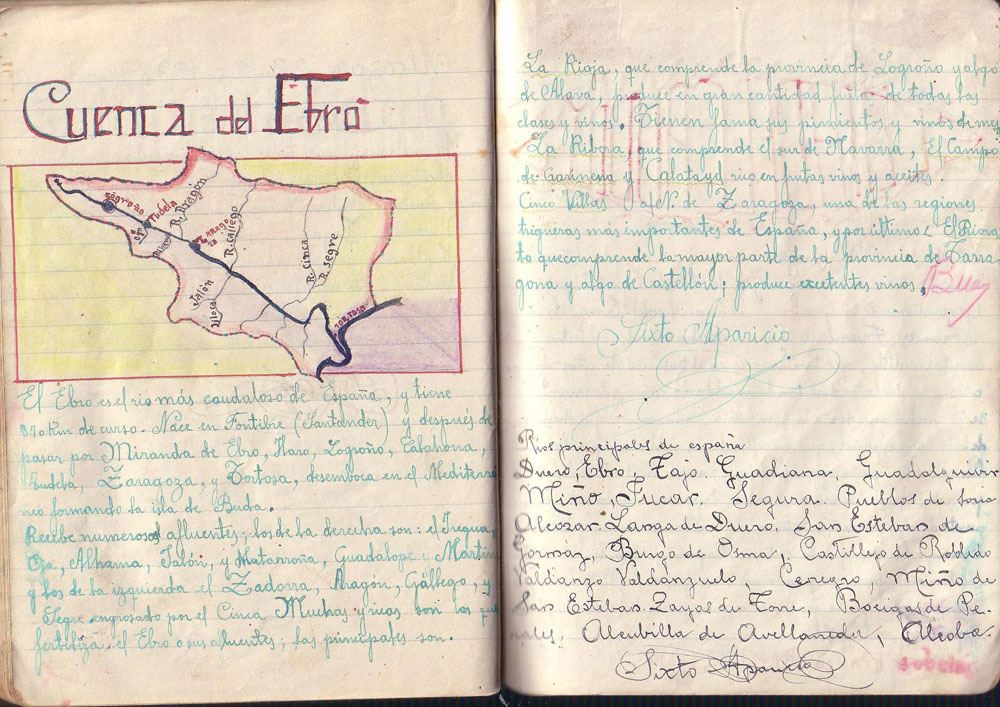 Cuenca del Ebro
Logroño
Tudela
R. Aragón
R. Gallego
R. Cinca
R. Segre
Jalón
Jiloca
TORTOSA
El Ebro es el rio más caudaloso de España, y tiene
840 km de curso. Nace en Fontibre (Santander) y después de
pasar por Miranda de Ebro, Haro, Logroño, Calahorra,
Tudela, Zaragoza, y Tortosa, desemboca en el Mediterra
neo formando la isla de Buda.
Recibe numerosos afluentes; los de la derecha son: el Iregua,
Oja, Alhama, Jalón, y Matarroña, Guadalope y Martín
y los de la izquierda el Zadorra, Aragón, Gállego, y
Segre engrosado por el Cinca Muchas y ricas son las que
fertiliza el Ebro o sus afluentes; las principales son.
La Rioja, que comprende la provincia de Logroño y algo
de Alava, produce en gran cantidad fruta de todas las
clases y vinos. Tienen fama sus pimientos y vinos de mesa
La Ribera, que comprende el sur de Navarra, El Campo
de Cariñena y Calatayd rico en frutas vinos y aceites.
Cinco Villas al N. de Zaragoza, una de las regiones
trigueras más importantes de España, y por último El Priora
to que comprende la mayor parte de la provincia de Tarra
gona y algo de Castellón; produce excelentes vinos.
Bien
Sixto Aparicio
Rios principales de españa
Duero, Ebro, Tajo Guadiana, Guadalquivir
Miño, Jucar. Segura. Pueblos de soria
Alcozar. Langa de Duero. San Esteban de
Gormáz, Burgo de Osma, Castillejo de Robledo
Valdanzo Valdanzuelo, Cenegro, Miño de
San Esteban Zayas de Torre, Bocigas de Pe
rales, Alcubilla de Avellaneda, Alcoba.
Sixto Aparicio